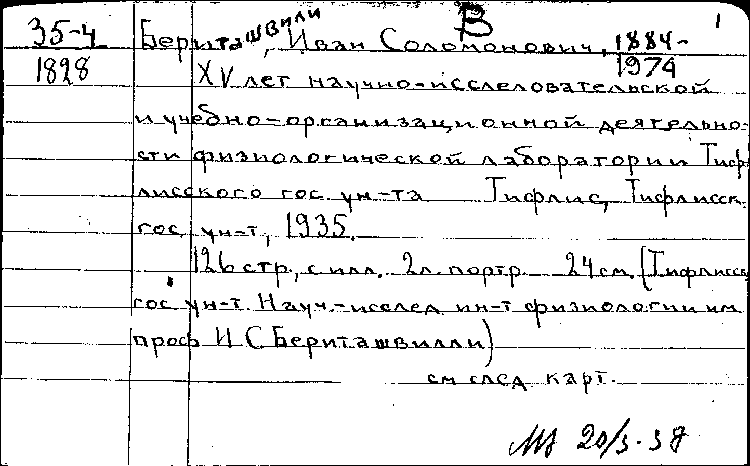 В 1
35-4 Бериташвили, Иван Соломонович, 1884-
1828 1974
XV лет научно-исследовательской
и учебно-организационной деятельно-
сти физиологической лаборатории Тиф-
лисского гос. ун-та Тифлис, Тифлисск.
гос. ун-т, 1935.
126 стр., с илл. 2л. портр. 24 см. (Тифлисс.
гос. ун-т. Науч.-исслед. ин-т физиологии им.
проф. И С Бериташвилли)
см след карт.
20/3-38